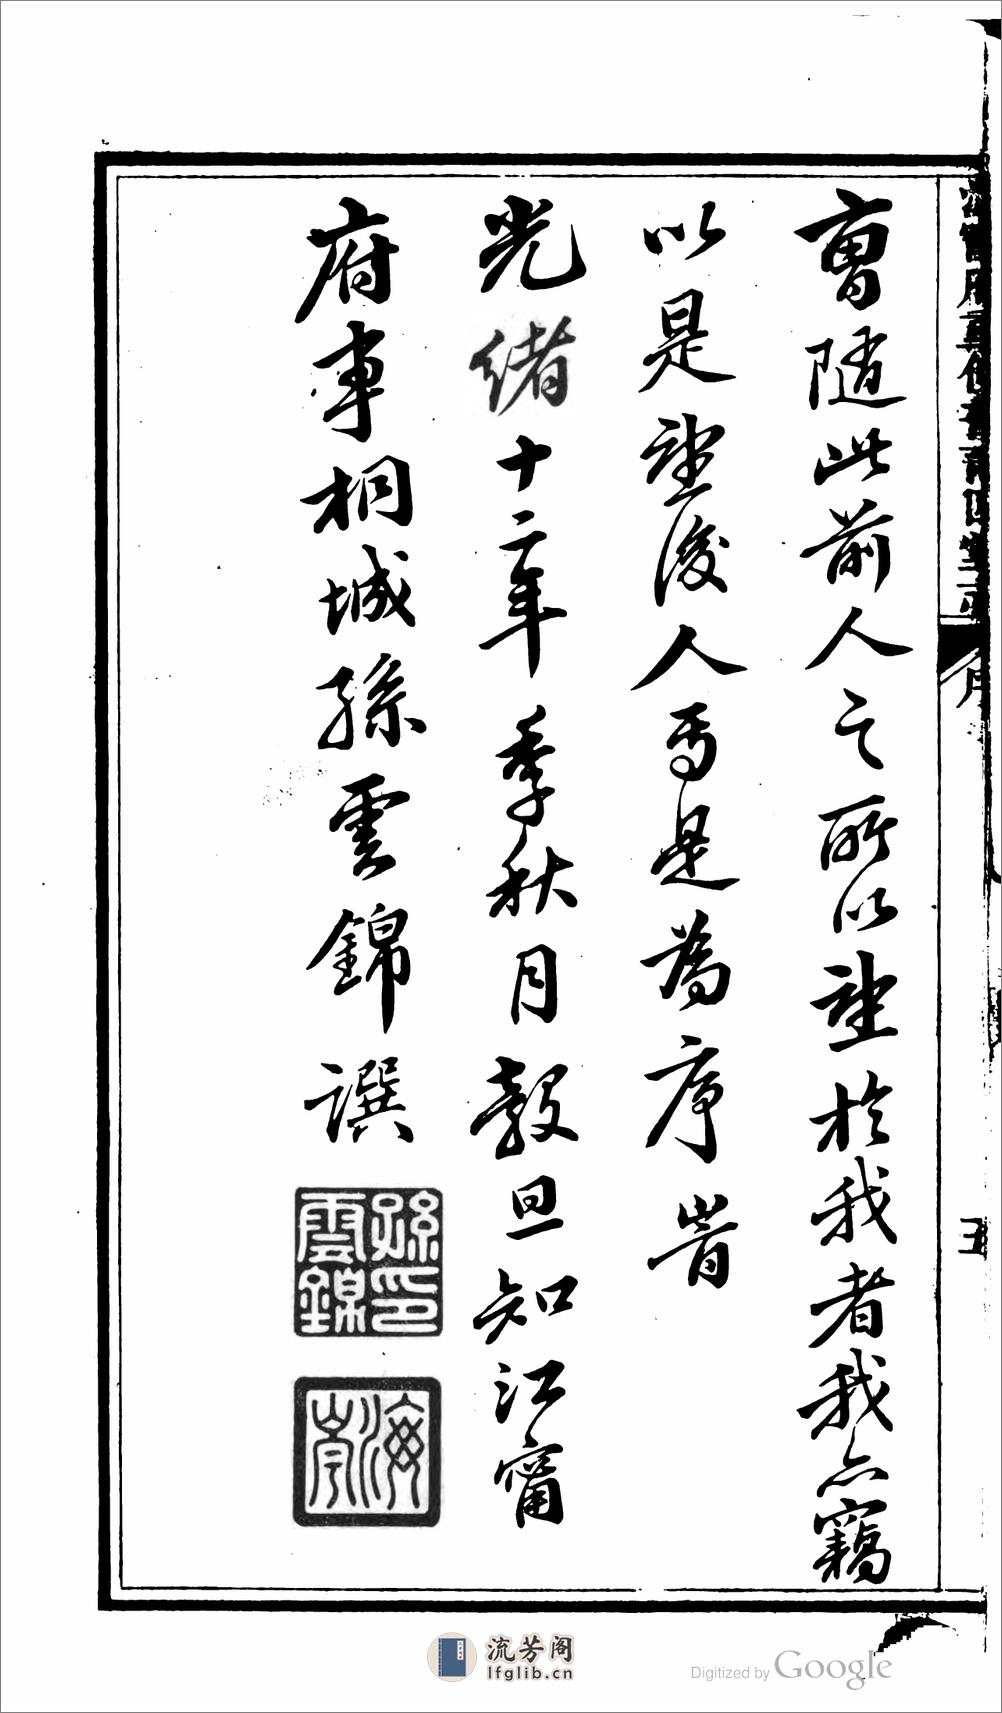 江甯府重修普育四堂志
序
五
曹隨此前人之所以望於我者我亦竊
以是望後人焉是為序旹
光緒十二年季秋月穀旦知江甯
府事桐城孫雲錦譔
孫印雲錦
海岑
流芳阁
lfglib.cn
Digitized by Google